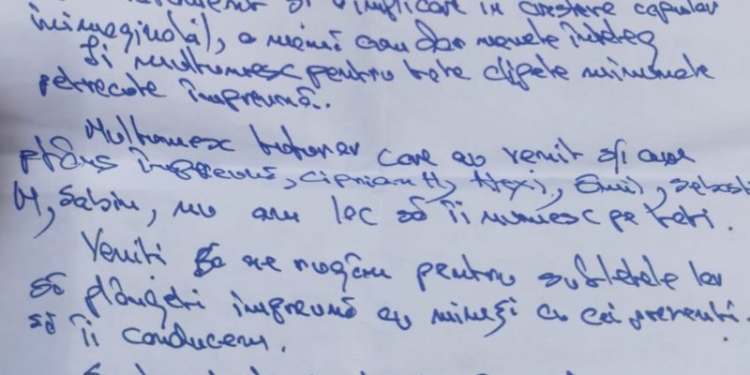 și implicare în creștere capular
inimaginală), o mamă cum doar mamele înțeleg
Îi mulțumesc pentru tote clipele minunate
petrecute împreună.
Mulțumesc tuturor care au venit și au
plâns împreună, Ciprian H, Alexi, Emil, Sebasti
M, Sabin, nu am loc să îi numesc pe toți.
Veniți să ne rugăm pentru sufletele lor
să plângeți împreună cu mine și cu cei prezenți.
să îi conducem.